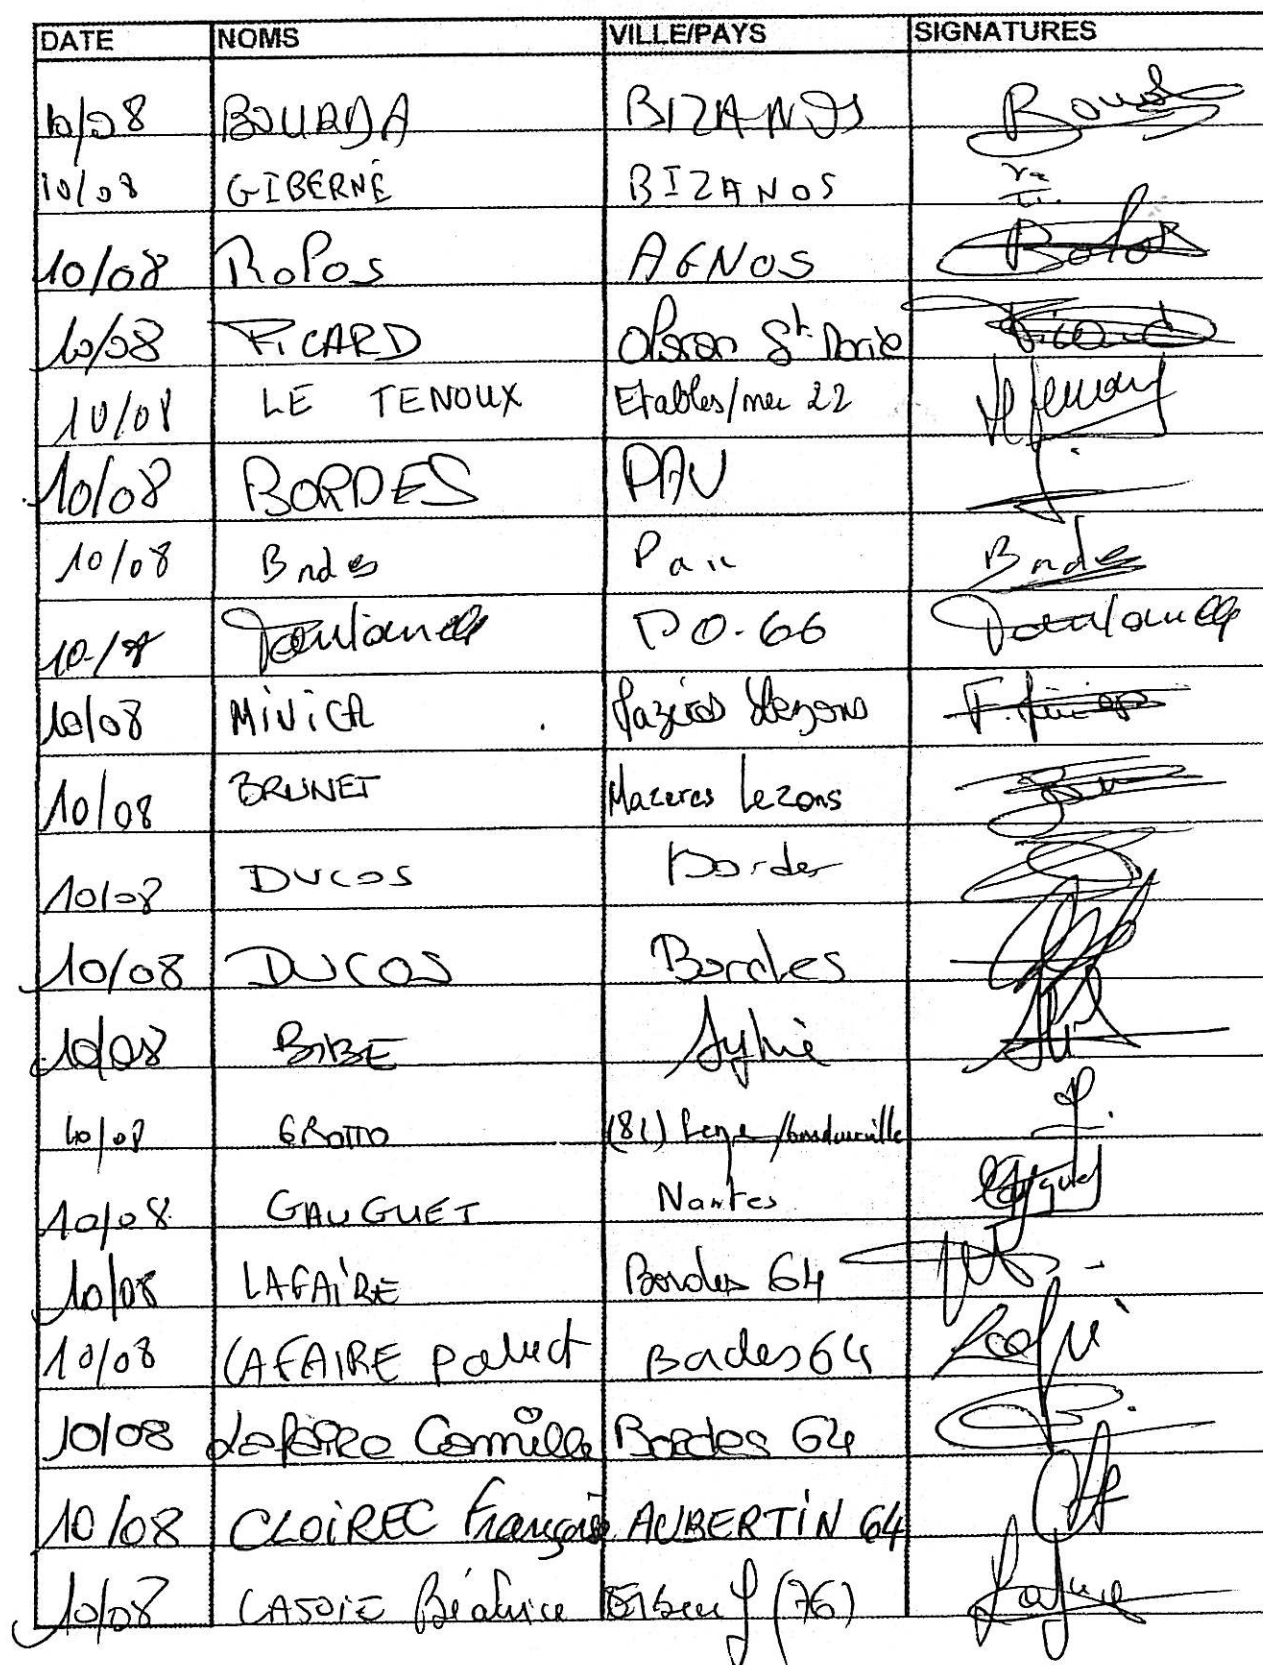 DATE NOMS VILLE/PAYS SIGNATURES
10/08 BOURDA BIZANOS
10/08 GIBERNE BIZANOS
10/08 ROPOS AGNOS
10/08 FICARD Oloron St Marie
10/08 LE TENOUX Etables/mer 22
10/08 BORDES PAU
10/08 Bordes Pau Bordes
PO-66
10/08 MINICA Mazères Lezons
10/08 BRUNET Mazeres Lezons
10/08 DUCOS Bordes
10/08 DUCOS Bordes
10/08 BIBE Sylvie
10/08 GROTTO
10/08 GAUGUET Nantes
10/08 LAFAIRE Bordes 64
10/08 LAFAIRE Bordes 64
10/08 Lafaire Camille Bordes 64
10/08 CLOIREC Françoise AUBERTIN 64
10/08 Béatrice Elbeuf (76)